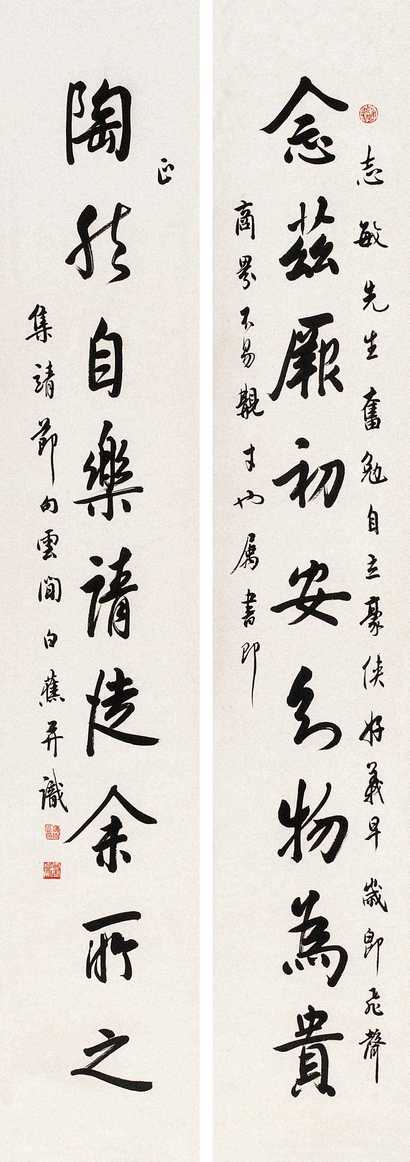 志敏先生奮勉自立豪俠好義早歲即飛聲
念茲厥初安知物為貴
商界不易觀才也屬書即
正
陶然自樂請從余所之
集靖節句雲間白蕉并識